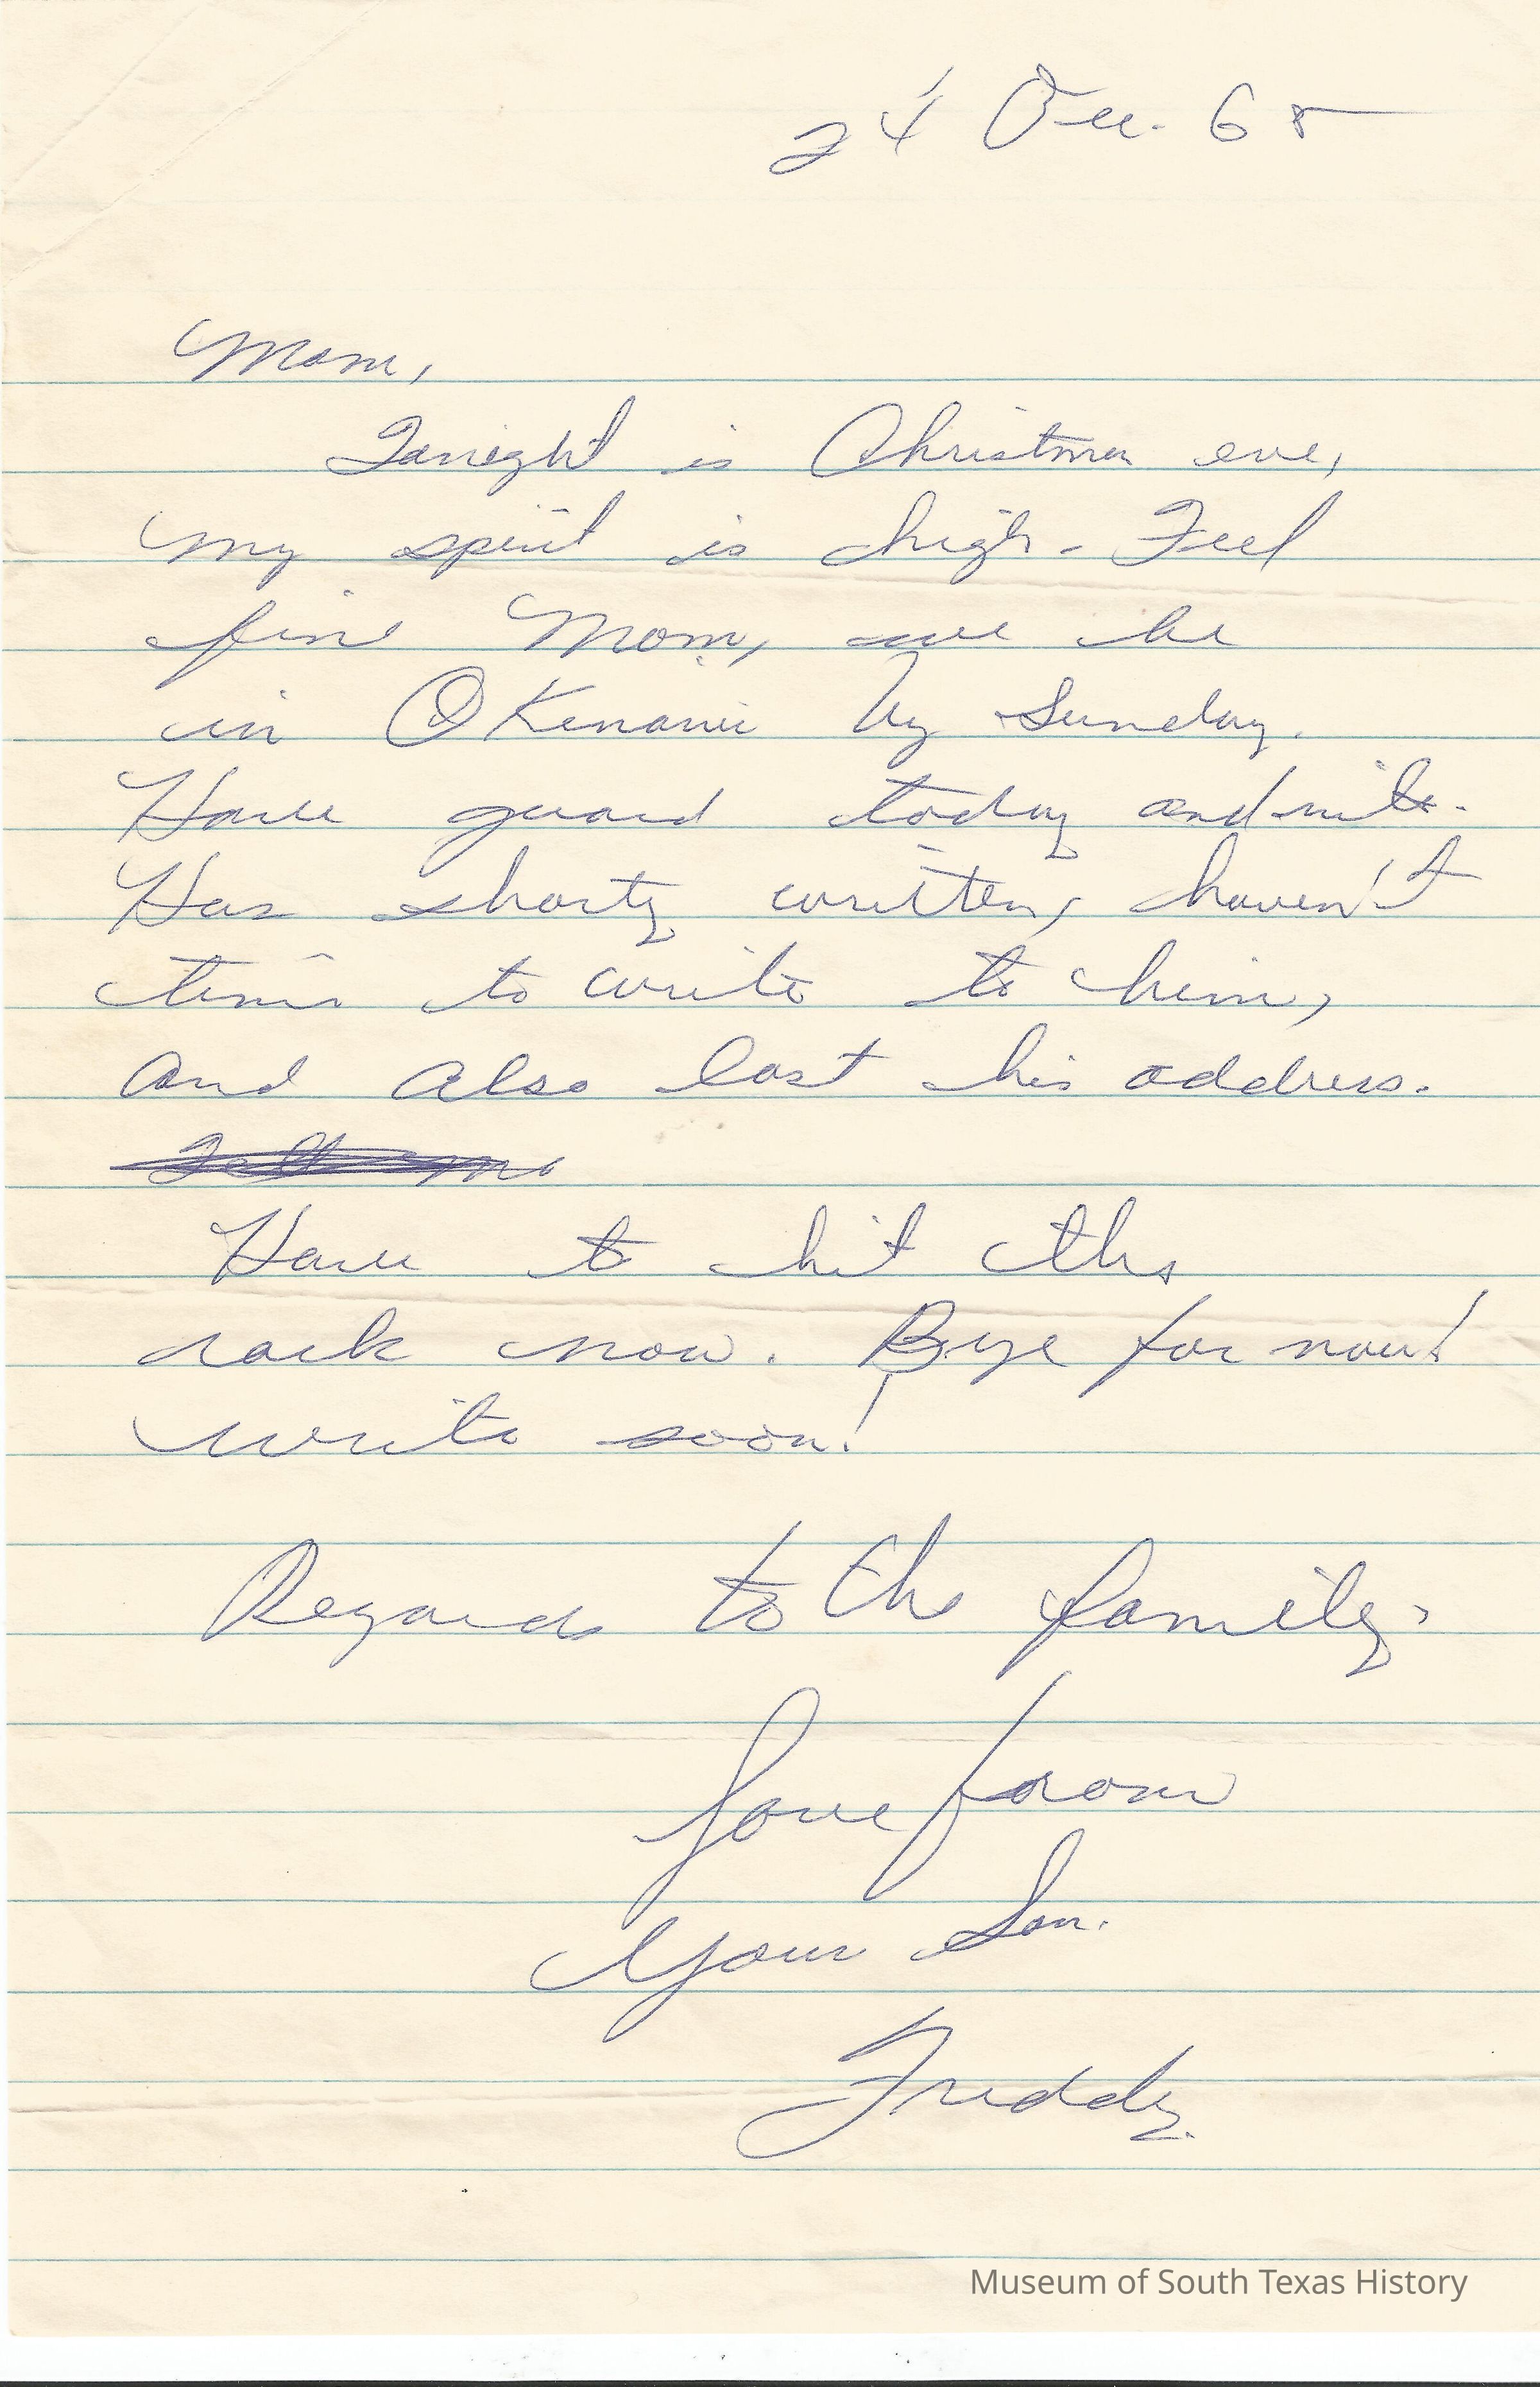 24 Dec. 65
Mom,
Tonight is Christmas eve,
my spirit is high - Feel
fine Mom, will be
in Okenawi by Sunday.
Have guard today and nite.
Has shorty written, haven't
time to write to him,
and also lost his address.
Have to hit the
rack now. Bye for now!
write soon!
Regards to the family,
Love from
Your Son.
Freddy.
Museum of South Texas History